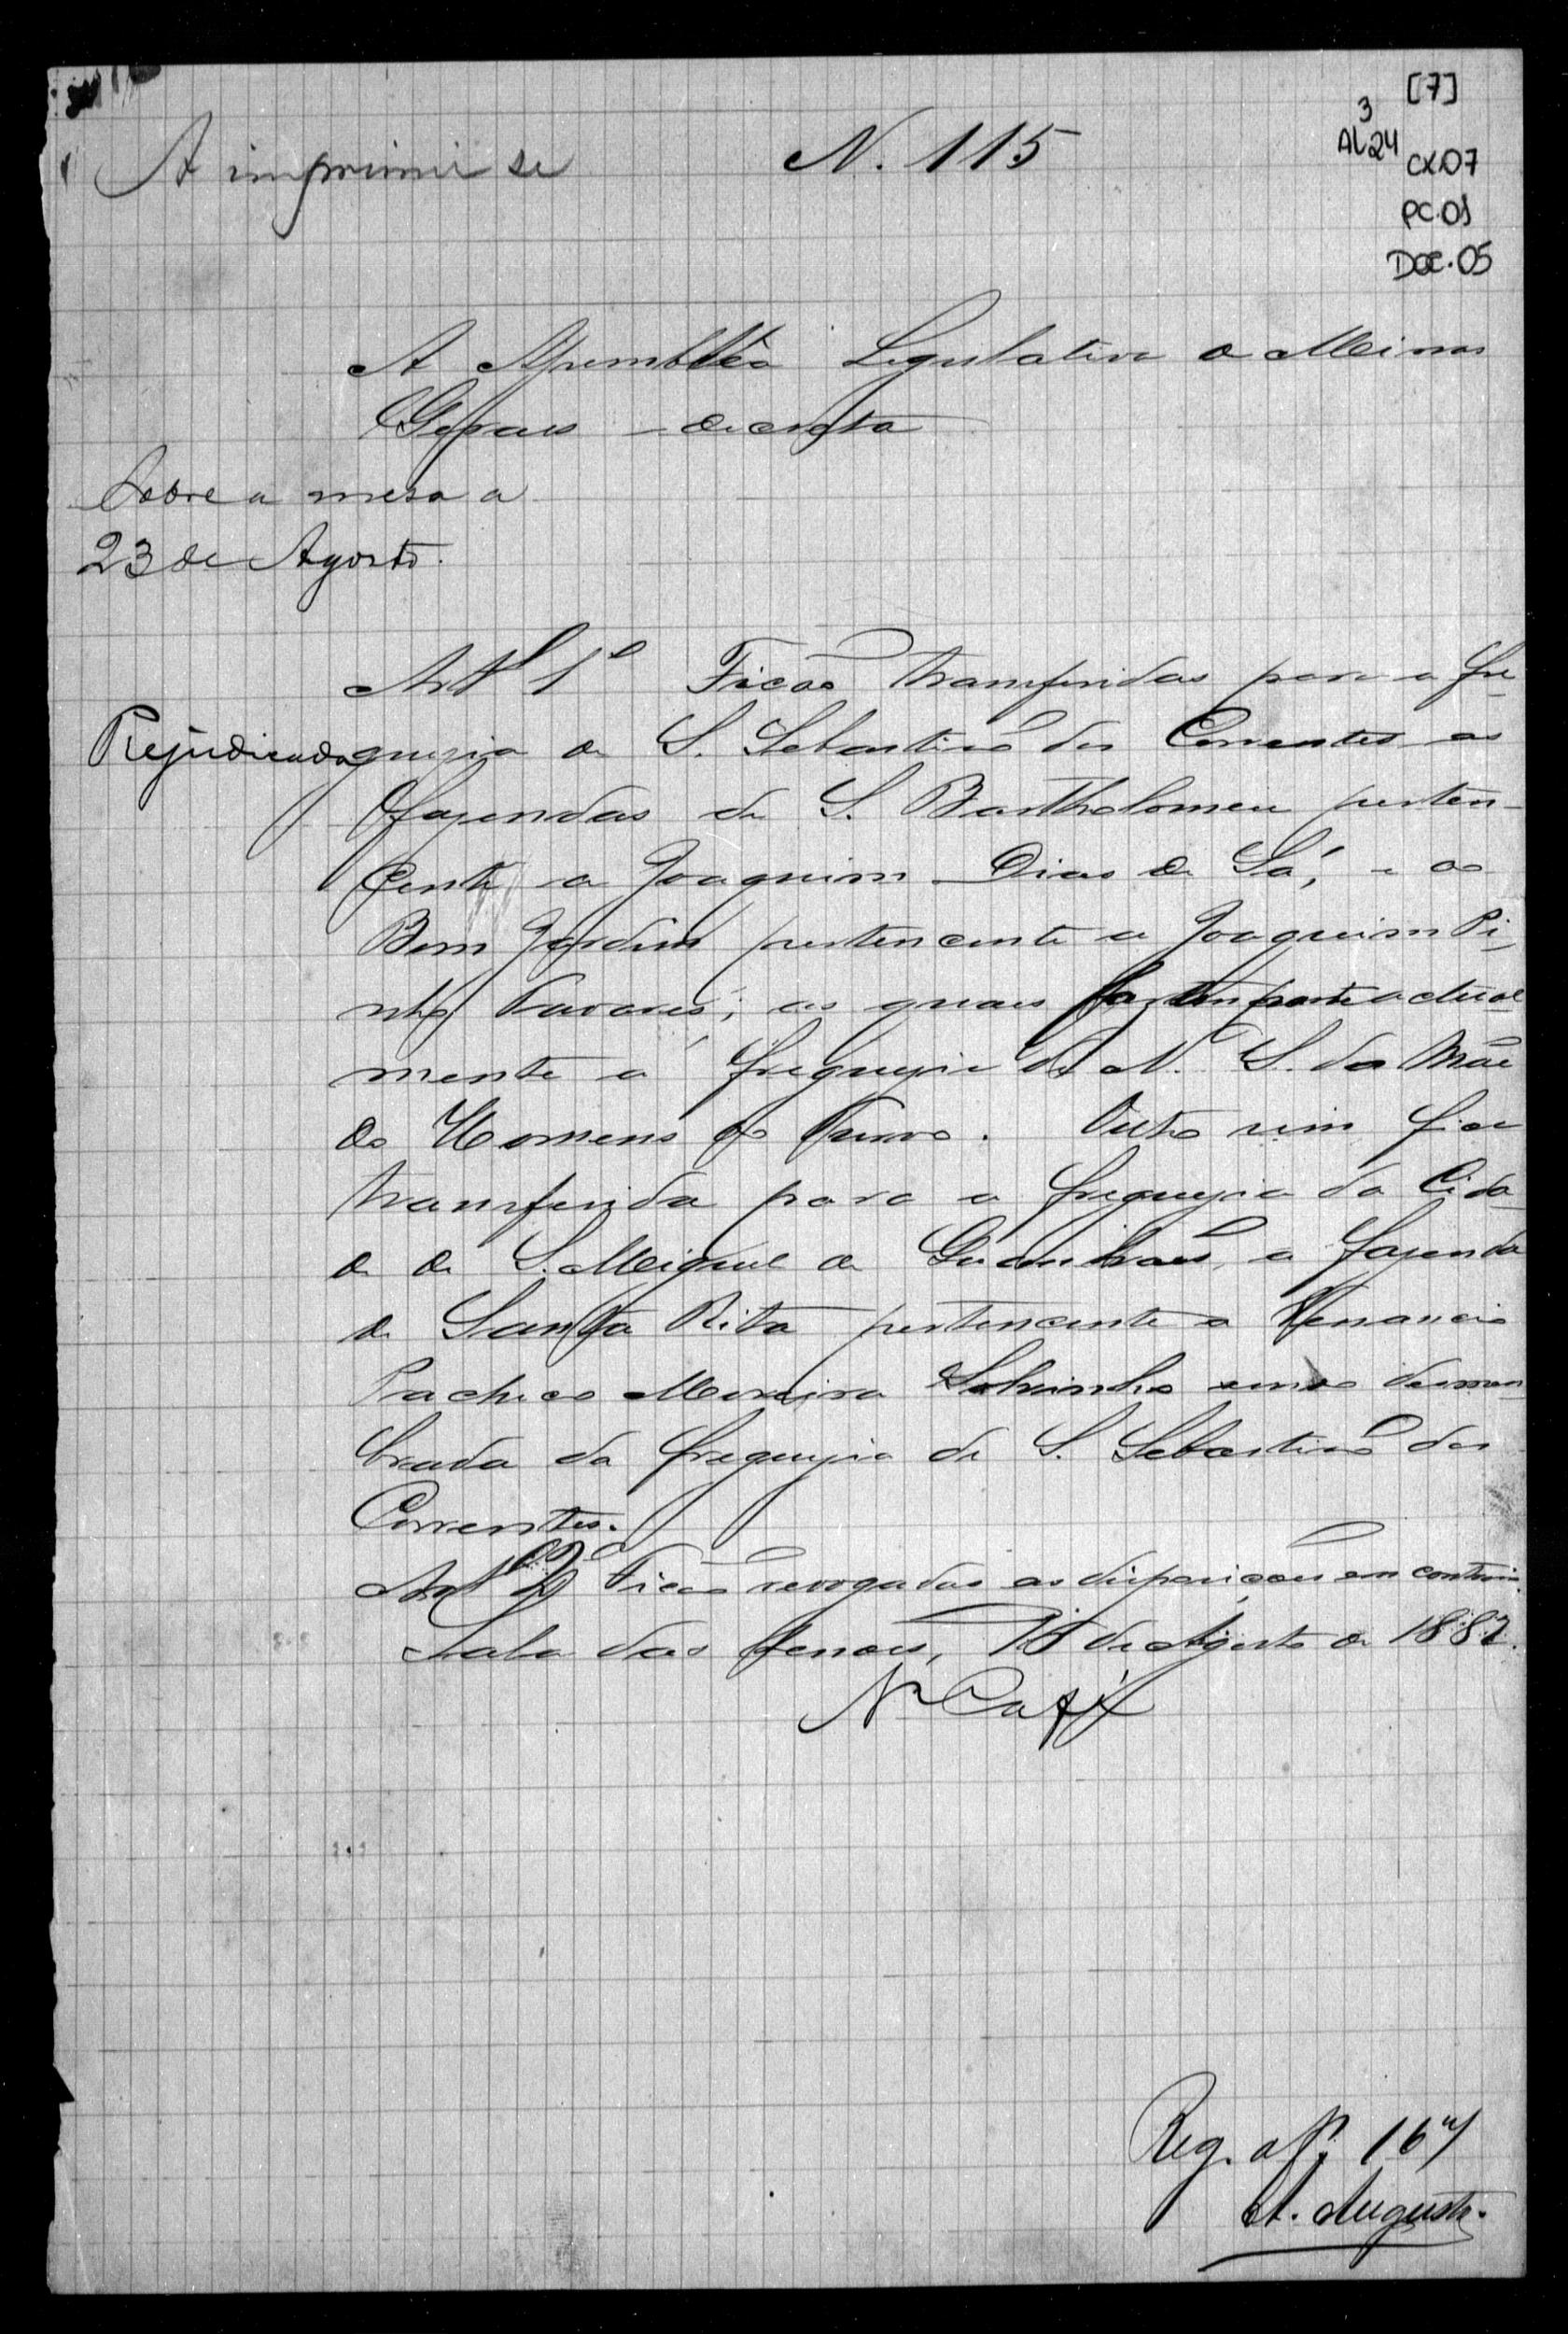 [7]
3
AL24
CX.07
PC.01
DOC.05
A imprimir se
N. 115
A Assembléa Legislativa de Minas
Geraes decreta
Sobre a mesa a
23 de Agosto.
Artº 1º Ficão transferidas para a fre
Prejudicado
guezia de S. Sebastião dos Correntes as
fazendas de S. Bartholomeu perten-
cente a Joaquim Dias de Sá, e as
Bom Jardim pertencente a Joaquim Pi-
nto Tavares; as quaes fazem parte actual
mente a freguezia de N. S. da Mãe
dos Homens do Turvo. Outro sim fica
transferida para a freguezia da Cida
de de S. Miguel de Guanhães, a fazenda
de Santa Rita pertencente a Venancio
Pacheco Moreira Sobrinho desmem
brada da freguezia de S. Sebastião dos
Correntes.
Artº 2º Ficão revogadas as disposições em contrario.
Sala das Sessoes, de Agosto de 1882.
N Café
Reg. a f.
A. Augusto.